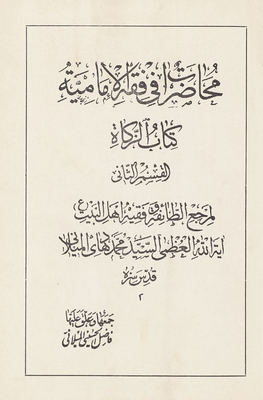 محاضرات في فقه الإمامية
كتاب الزكاة
القسم الثاني
لمرجع الطائفة وفقيه أهل البيت ع
آية الله العظمى السيد محمد هادي الميلاني
قدس سره
٢
جمعها وعلق عليها
فاضل الحسيني الميلاني